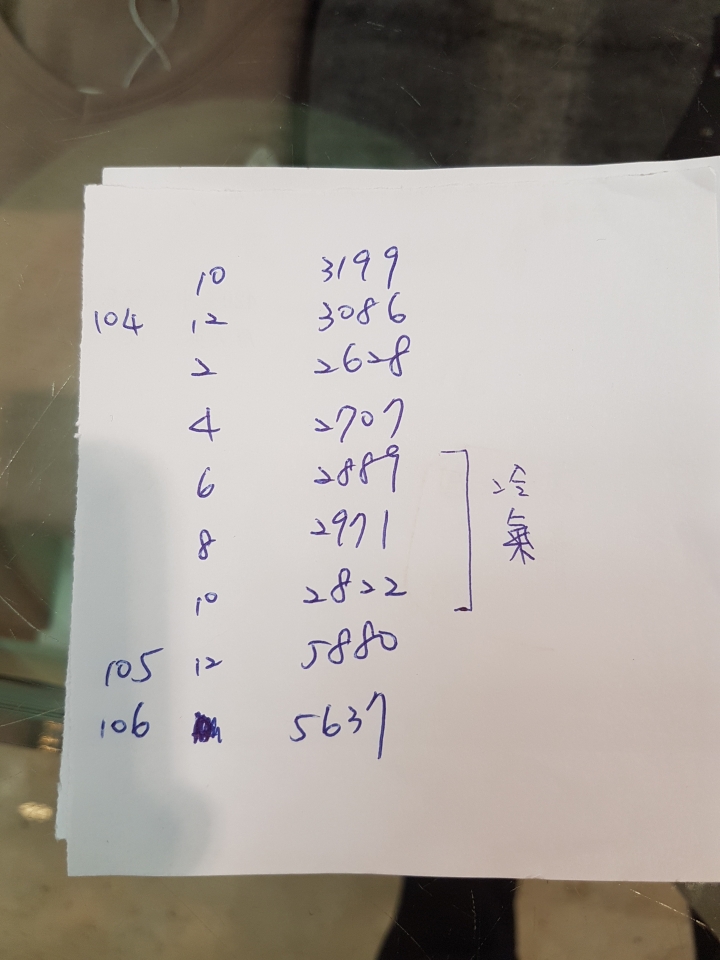 10 3199
104 12 3086
2 2628
4 2707
6 2889
8 2971
10 2822
冷氣
105 12 5880
106 5637